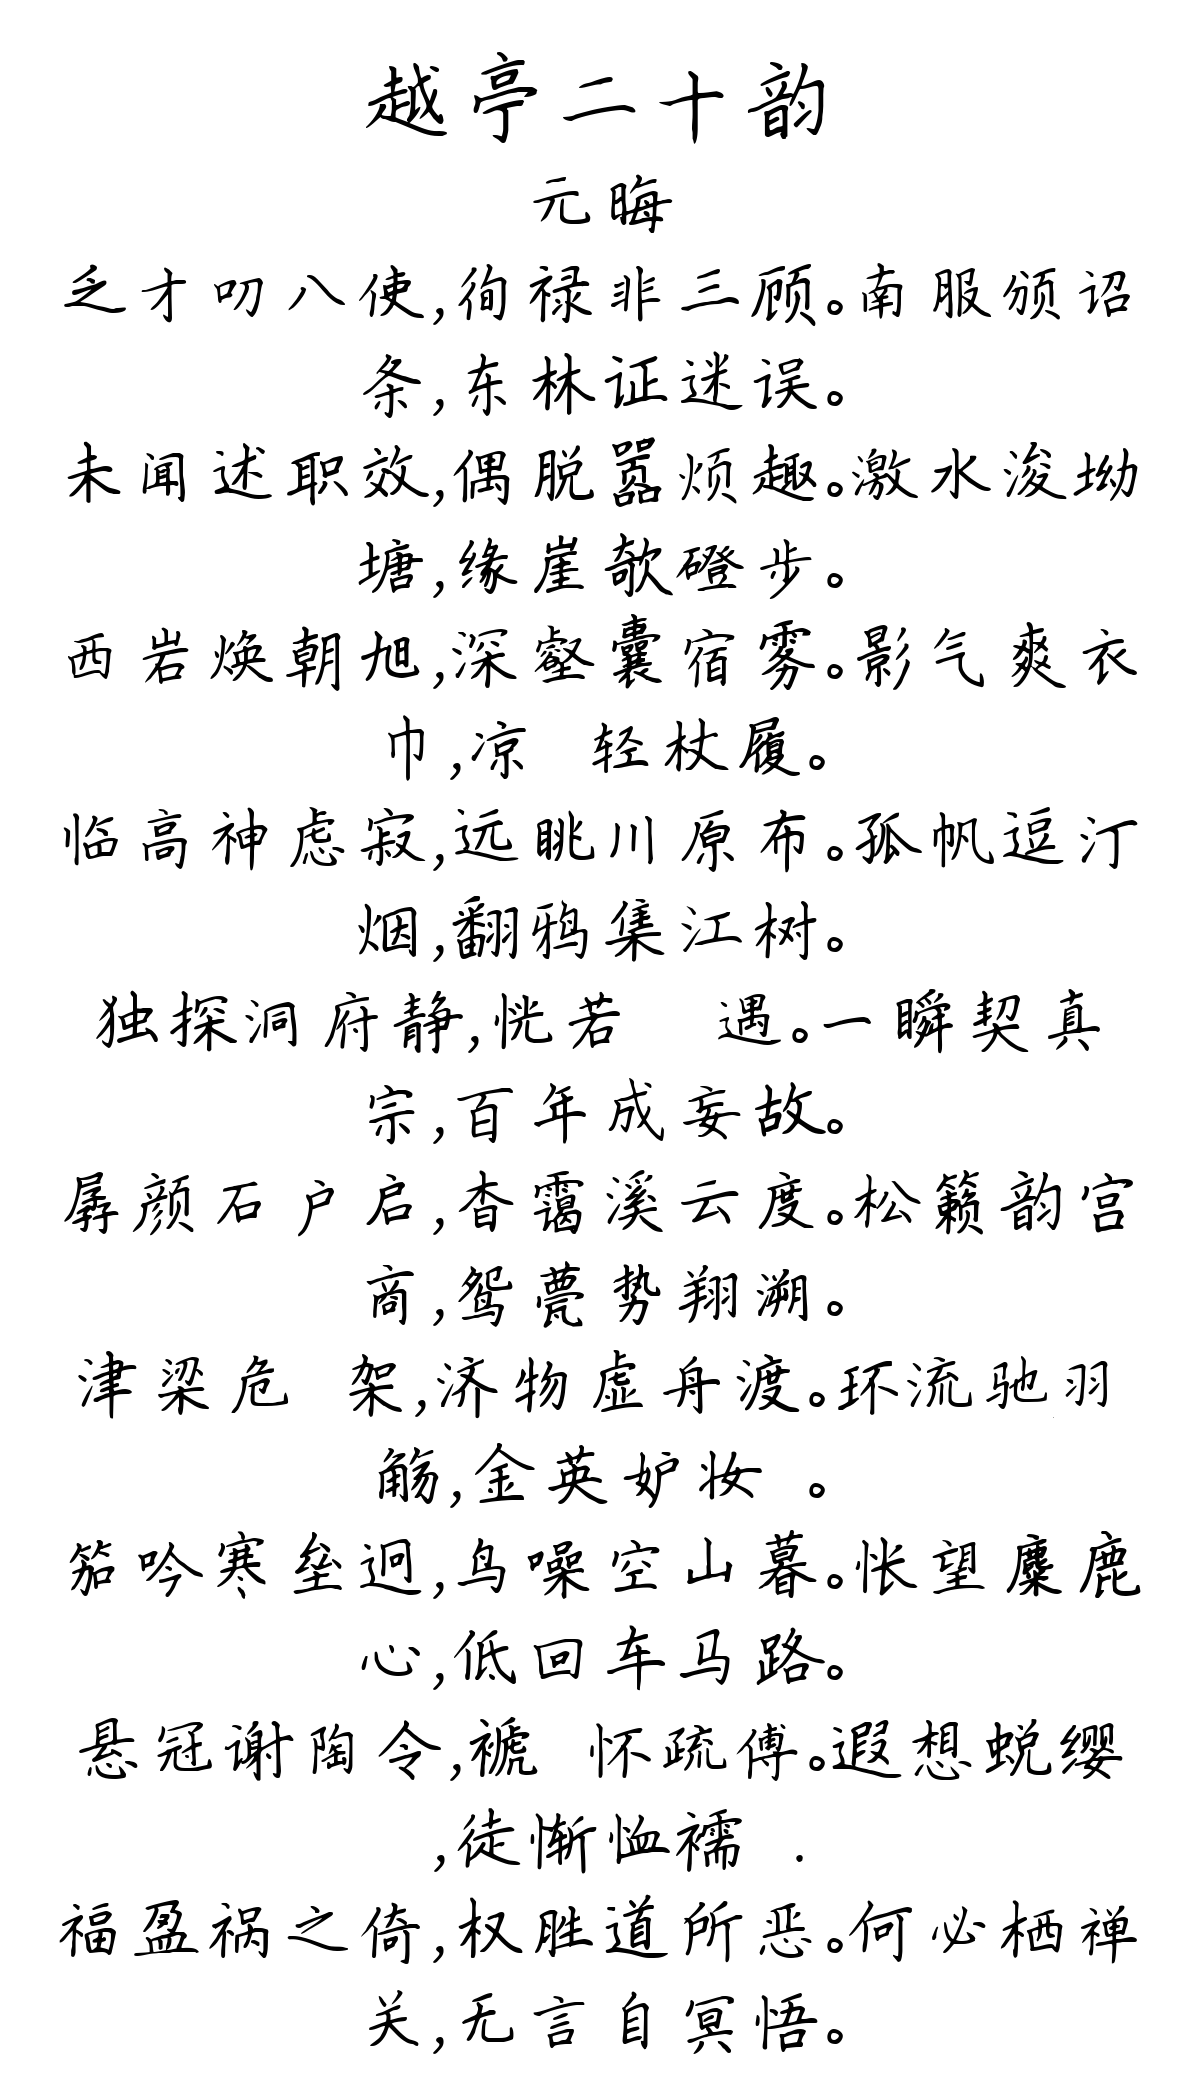 越亭二十韵
元晦
乏才叨八使,徇禄非三顾。南服颁诏
条,东林证迷误。
未闻述职效,偶脱嚣烦趣。激水浚坳
塘,缘崖欹磴步。
西岩焕朝旭,深壑囊宿雾。影气爽衣
巾,凉 轻杖履。
临高神虑寂,远眺川原布。孤帆逗汀
烟,翻鸦集江树。
独探洞府静,恍若 遇。一瞬契真
宗,百年成妄故。
孱颜石户启,杳霭溪云度。松籁韵宫
商,鸳甍势翔溯。
津梁危 架,济物虚舟渡。环流驰羽
觞,金英妒妆 。
笳吟寒垒迥,鸟噪空山暮。怅望麋鹿
心,低回车马路。
悬冠谢陶令,褫 怀疏傅。遐想蜕缨
,徒惭恤襦 .
福盈祸之倚,权胜道所恶。何必栖禅
关,无言自冥悟。